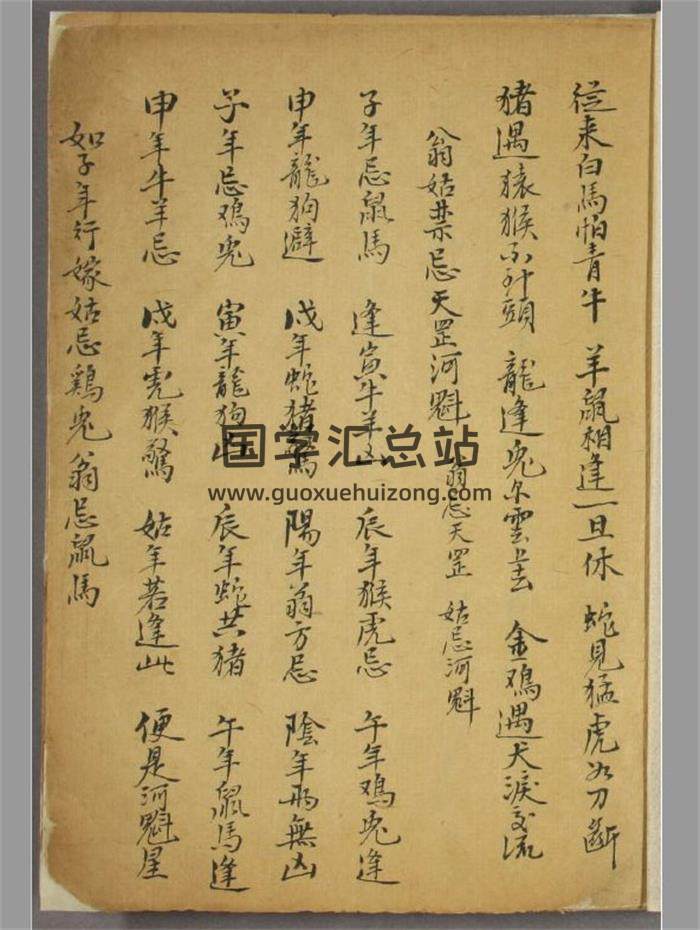 從来白馬怕青牛 羊鼠相逢一旦休 蛇見猛虎如刀斷
猪遇猿猴不到頭 龍逢兎尔雲去 金鸡遇犬淚交流
翁姑禁忌天罡河魁 翁忌天罡 姑忌河魁
子年忌鼠馬 逢寅牛羊凶 辰年猴虎忌 午年鸡兎逢
申年龍狗避 戌年蛇猪驚 陽年翁方忌 陰年用無凶
子年忌鸡兎 寅年龍狗此 辰年蛇共猪 午年鼠馬逢
申年牛羊忌 戌年虎猴驚 姑年若逢此 便是河魁星
如子年行嫁姑忌鷄兎翁忌鼠馬
国学汇总站
www.guoxuehuizong.com